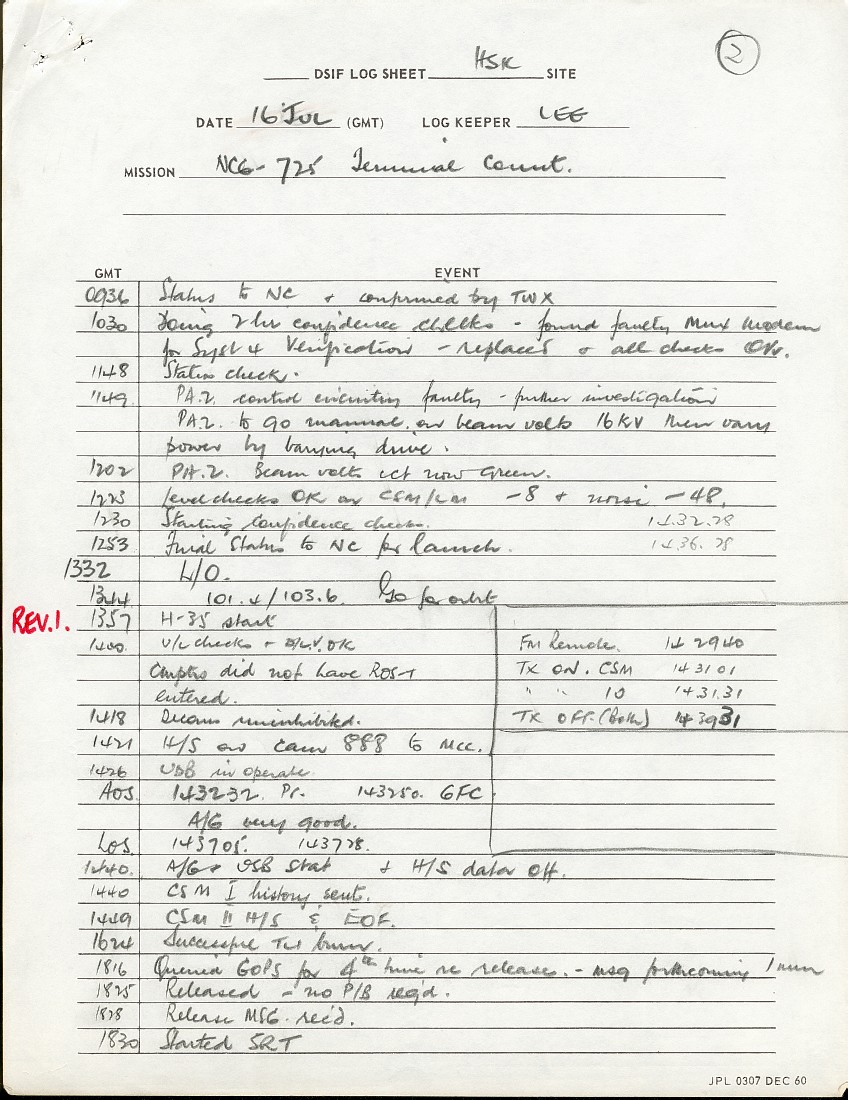 2
DSIF LOG SHEET HSK SITE
DATE 16 JUL (GMT) LOG KEEPER LEE
MISSION NCG-725 Terminal Count.
GMT EVENT
0936 Status to NC & confirmed by TWX
1030 Doing 2 hr confidence checks - found faulty Mux Modem
for Syst 4 Verification - replaced & all checks OK.
1148 Status check.
1149 PA.2. control circuitry faulty - further investigation
PA.2. to go manual on beam volts 16KV then vary
power by varying drive.
1202 PA.2. Beam volts cct now Green.
1223 Level checks OK on CSM/LM -8 & noise -48.
1230 Starting confidence checks. 14.32.28
1253 Final Status to NC for launch. 14.36.28
1332 L/O.
1344 101.4/103.6. Go for orbit
REV.1. 1357 H-35 start
1400. U/L checks & D/L.V. OK FM Remote. 14 2940
Cmptrs did not have ROS-T TX ON. CSM 143101
entered. " " 10 143131
1418 Decoms uninhibited. TX OFF (both) 143931
1421 H/S on cam 888 to MCC.
1426 USB in operate.
AOS. 143232. Pr. 143250. GFC
A/G very good.
LOS. 143705. 143728.
1440. A/G & USB Stat & H/S data off.
1440 CSM I history sent.
1449 CSM II H/S & EOF.
1624 Successful TLI burn.
1816 Queried GOPS for 4th time re release. - msg forthcoming 1 min
1825 Released - no P/B req'd.
1828 Release MSG. rec'd.
1830 Started SRT
JPL 0307 DEC 60